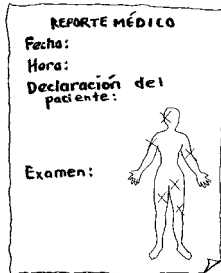 REPORTE MÉDICO
Fecha:
Hora:
Declaración del
paciente:
Examen: